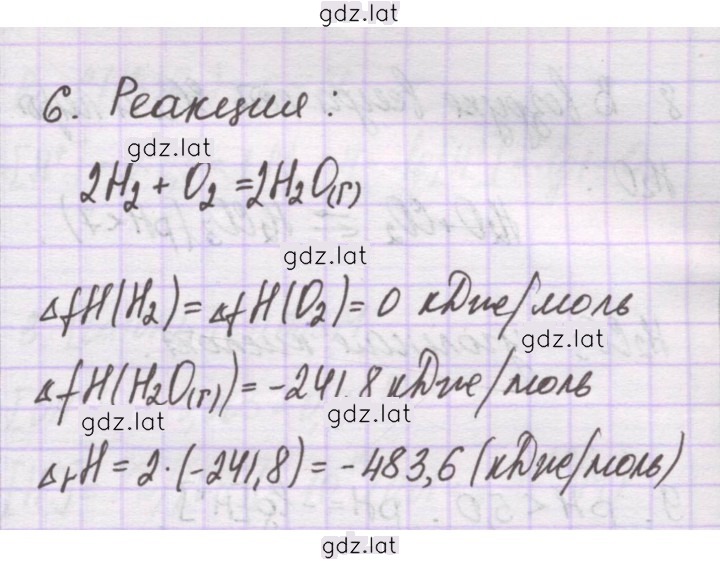 gdz.lat
6. Реакция:
gdz.lat
2H₂ + O₂ = 2H₂O(г)
gdz.lat
ΔfH(H₂) = ΔfH(O₂) = 0 кДже/моль
gdz.lat
ΔfH(H₂O(г)) = -241,8 кДже/моль
gdz.lat
gdz.lat
ΔrH = 2·(-241,8) = -483,6 (кДже/моль)
gdz.lat